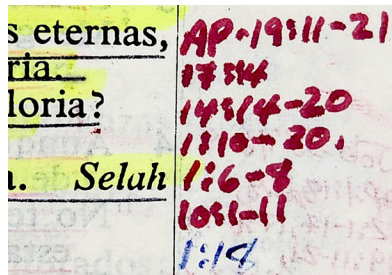 s eternas,
ria.
loria?
a. Selah
AP. 19:11-21
17:14
14:14-20
1:10-20.
1:6-8
10:1-11
1:18